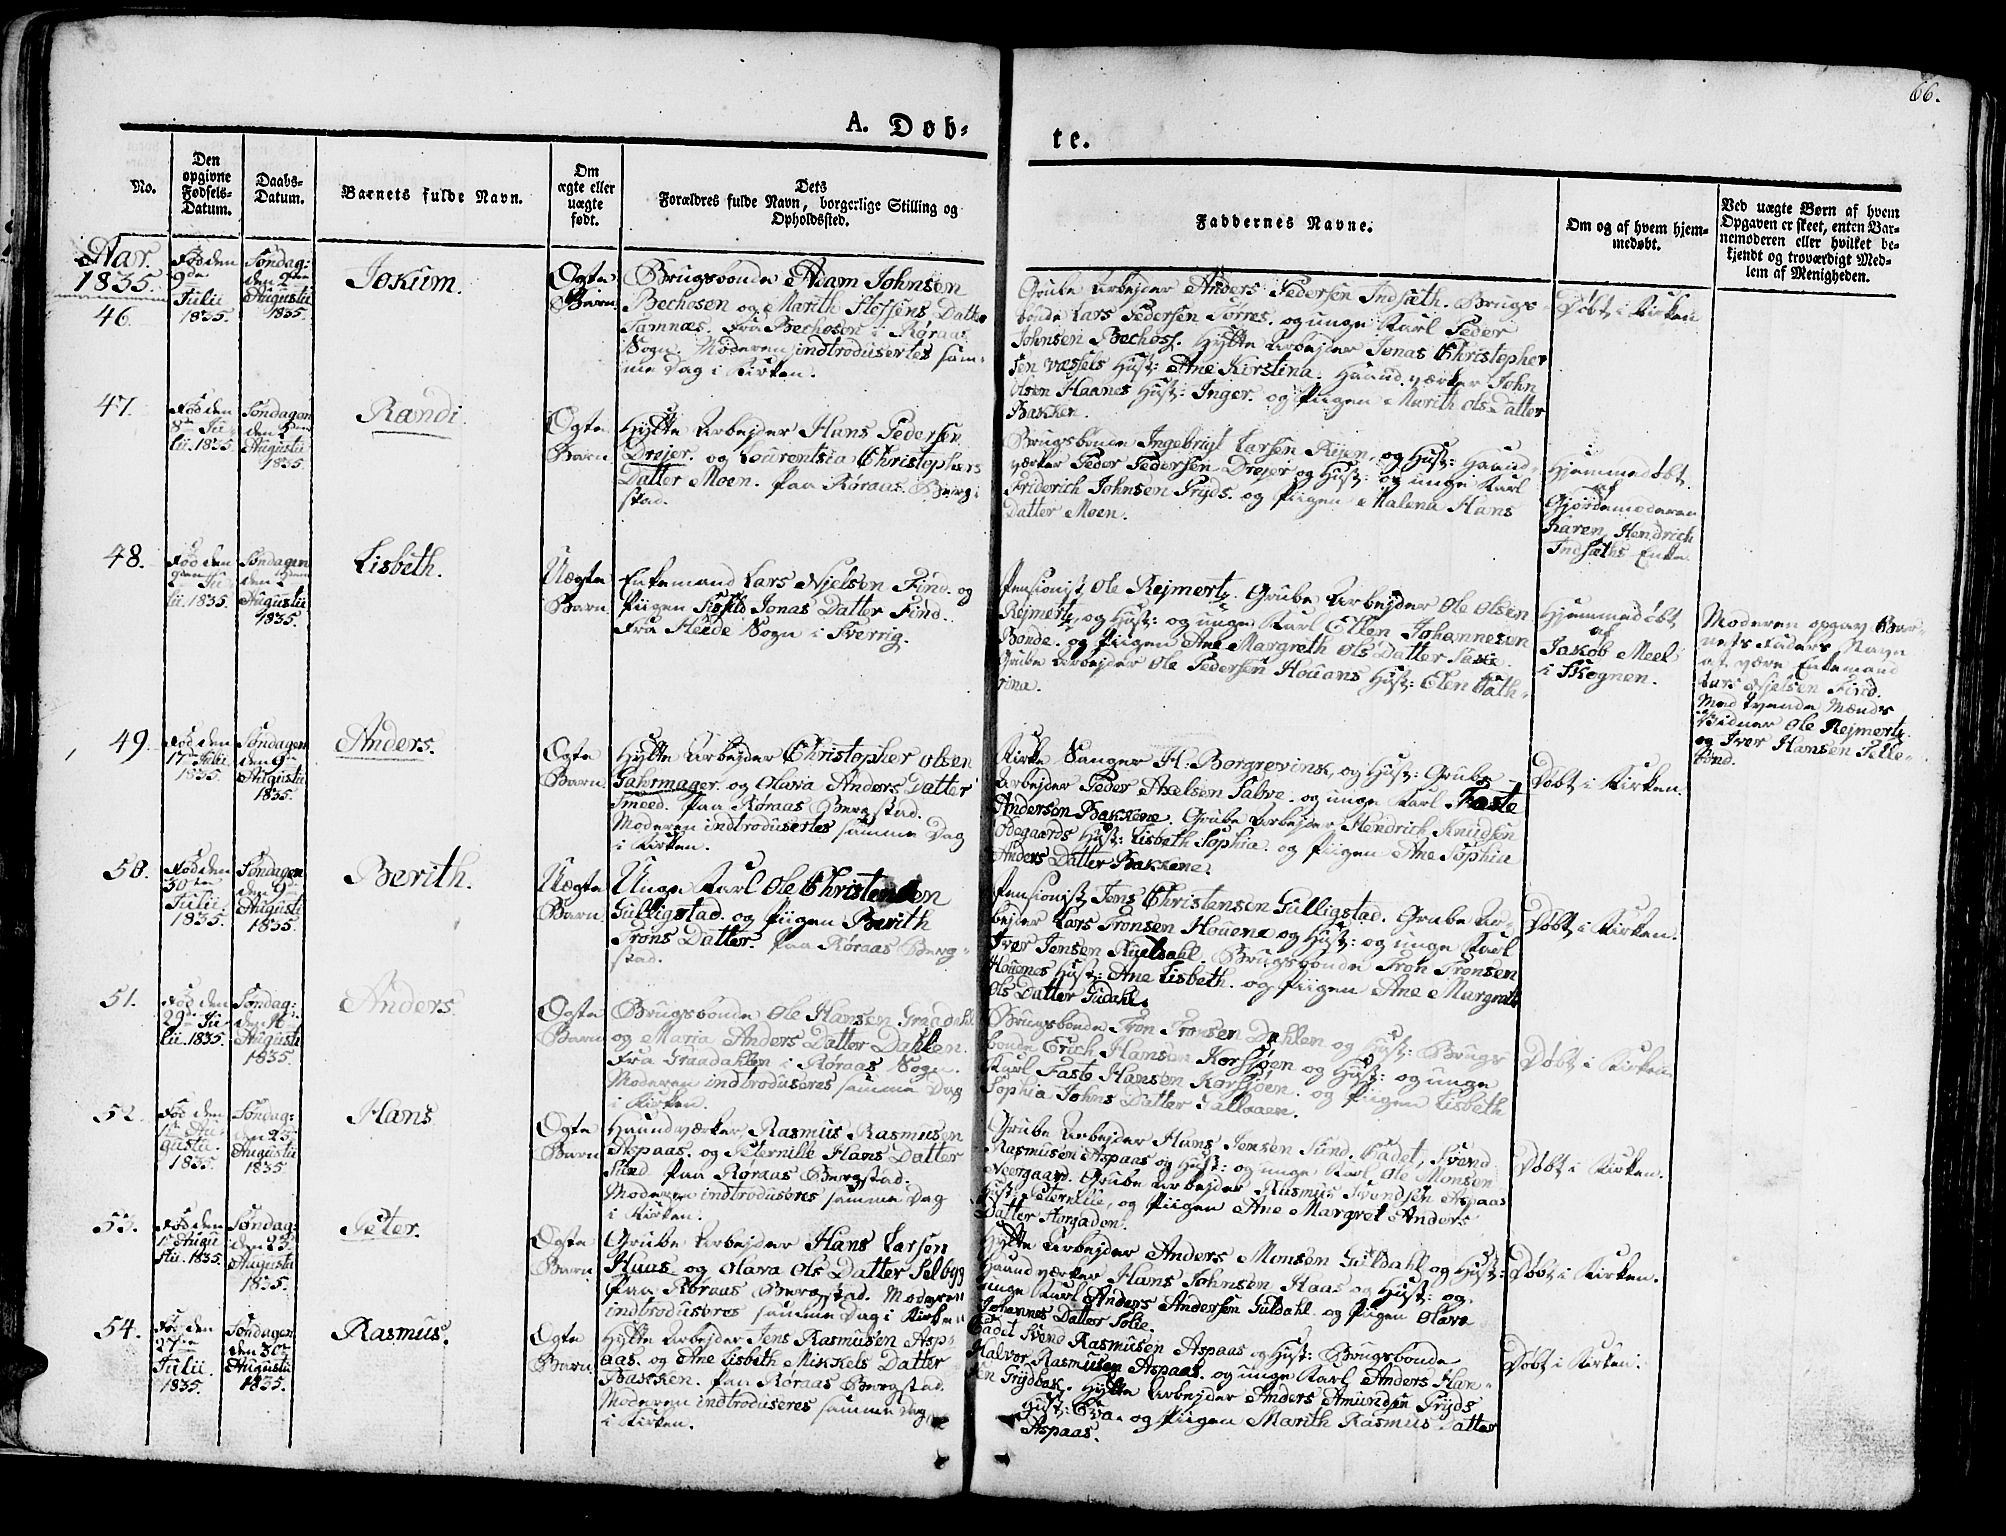 66.
A. Døb-
te.
No.
Den
opgivne
Fødsels-
Datum.
Daabs-
Datum.
Barnets fulde Navn.
Om
ægte eller
uægte
født.
Dets
Forældres fulde Navn, borgerlige Stilling og
Opholdssted.
Faddernes Navne.
Om og af hvem hjem-
medøbt.
Ved uægte Børn af hvem
Opgaven er skeet, enten Bar-
nemoderen eller hvilket be-
kjendt og troværdigt Med-
lem af Menigheden.
Aar.
1835.
46.
Fød den
9de
Julii
1835.
Søndag:
den 2den
Augustii
1835.
Jokum.
Ægte
Barn.
Brugsbonde Adam Johnsen
Bechosen og Marith Steffens Datter
Tamnæs. Fra Bechosen i Røraas
Sogn. Moderen indtrodusertes sam-
me Dag i Kirken.
Grube Arbejder Anders Pedersen Indsæth. Brugs-
bonde Lars Pedersen Torres. og unge Karl Peder
Johnsen Bechoss. Hytte Arbejder Jonas Christopher
sen Vassels Hust: Ane Kirstina. Haandværker John
Olsen Haanes Hust: Inger. og Piigen Marith Ols Datter
Bakken.
Døbt i Kirken
47.
Fød den
8de Ju-
lii. 1835.
Søndagen
den 2den
Augustii
1835.
Randi.
Ægte
Barn
Hytte Arbejder Hans Pedersen
Drejer. og Lourentsia Christophers
Datter Moen. Paa Røraas Berg-
stad.
Brugsbonde Ingebrigt Larsen Rijen, og Hust: Haand-
værker Peder Pedersen Drejer og Hust: og unge Karl
Friderich Johnsen Prÿds. og Piigen Malena Hans
Datter Moen.
Hjemmedøbt
af
Gjordemoderen
Karen Hendrich
Indsæths Enke.
48.
Fød den
9den Ju-
lii. 1835.
Søndagen
den 2den
Augustii
1835.
Lisbeth.
Uægte
Barn
Enkemand Lars Njelsen Find. og
Piigen Sissild Jonas Datter Find.
Fra Heede Sogn i Sverrig.
Pensionist Ole Rejmertz. Grube Arbejder Ole Olsen
Rejmertz, og Hust: og unge Karl Ellen Johannesen
Bonde. og Piigen Ane Margreth Ols Datter Saxe.
Grube Arbejder Ole Pedersen Houans Hust: Elen Cath-
rina.
Hjemmedøbt
af
Jakob Meel
i Skognen.
Moderen opgav Bar-
nets Faders Navn
at være Enkemand
Lars Njelsen Find.
Med tvende Mænds
Vidner Ole Rejmertz.
og Iver Hansen Pelle-
find.
49.
Fød den
17de Julii
1835.
Søndagen
den 9de
Augustii
1835.
Anders.
Ægte
Barn
Hytte Arbejder Christopher Olsen
Gahrmager. og Olava Anders Datter
Smeed. Paa Røraas Bergstad.
Moderen indtrodusertes samme Dag
i Kirken.
Kirke Sanger H: Borgrevink, og Hust: Grube
Arbejder Peder Axelsen Sabre. og unge Karl Faste
Andersen Bakkene. Grube Arbejder Hendrich Knudsen
Ødegaards Hust: Lisbeth Sophia. og Piigen Ane Sophia
Anders Datter Bakkene.
Døbt i Kirken.
50.
Fød den
30te
Julii.
1835.
Søndagen
den 9de
Augustii
1835.
Berith.
Uægte
Barn
Unge Karl Ole Christensen
Gulligstad. og Piigen Berith
Trons Datter. Paa Røraas Berg-
stad.
Pensionist Jens Christensen Gulligstad. Grube Ar-
bejder Lars Tronsen Houene og Hust: og unge Karl
Iver Jensen Kueldahl. Brugsbonde Tron Tronsen
Houenes Hust: Ane Lisbeth. og Piigen Ane Margreth
Ols Datter Gudahl.
Døbt i Kirken.
51.
Fød den
29de Ju-
lii. 1835.
Søndag:
den 16
Augustii
1835.
Anders
Ægte
Barn
Brugsbonde Ole Hansen Graadahl
og Maria Anders Datter Dahlen.
Fra Graadahlen i Røraas Sogn.
Moderen indtroduseres samme Dag
i Kirken.
Brugsbonde Tron Tronsen Dahlen og Hust: Brugs
bonde Erich Hansen Korssjøen og Hust: og unge
Karl Faste Hansen Korssjøen. og Piigen Lisbeth
Sophia Johns Datter Galaaen.
Døbt i Kirken
52.
Fød den
1te Au-
gustii.
1835.
Søndag:
den 23
Augustii
1835.
Hans
Ægte
Barn
Haandværker, Rasmus Rasmusen
Aspaas. og Peternille Hans Datter
Sund. Paa Røraas Bergstad.
Moderen indtroduseres samme Dag
i Kirken.
Grube Arbejder Hans Jensen Sund. Cadet, Svend
Rasmusen Aspaas og Hust: og unge Karl Ole Monsen
Neergaard. Grube Arbejder Rasmus Svendsen Aspaas
Hust: Peternille, og Piigen Ane Margret Anders
Datter Horgaden.
Døbt i Kirken.
53.
Fød den
1te Augu
stii. 1835.
Søndag:
den 23
Augustii
1835.
Peter.
Ægte
Barn
Grube Arbejder Hans Larsen
Haas. og Olava Ols Datter Selbygg
Paa Røraas Bergstad. Moderen
indtroduseres samme Dag i Kirken
Hytte Arbejder Anders Monsen Guldahl og Hust:
Haandværker Hans Johnsen Haas og Hust: og
unge Karl Anders Andersen Guldahl. og Piigen Olava
Johannes Datter Solie.
Døbt i Kirken.
54.
Fød den
27de
Julii
1835.
Søndagen
den 30te
Augustii
1835.
Rasmus.
Ægte
Barn.
Hytte Arbejder Jens Rasmusen Asp-
aas. og Ane Lisbeth Mikkels Datter
Bakken. Paa Røraas Bergstad.
Moderen indtroduseres samme Dag
i Kirken.
Cadet Svend Rasmusen Aspaas og Hust: Brugsbonde
Halvor Rasmusen Aspaas. og unge Karl Anders Han-
sen Prÿdbak. Hytte Arbejder Anders Amundsen Prÿds
Hust: Eva. og Piigen Marith Rasmus Datter
Aspaas.
Døbt i Kirken.